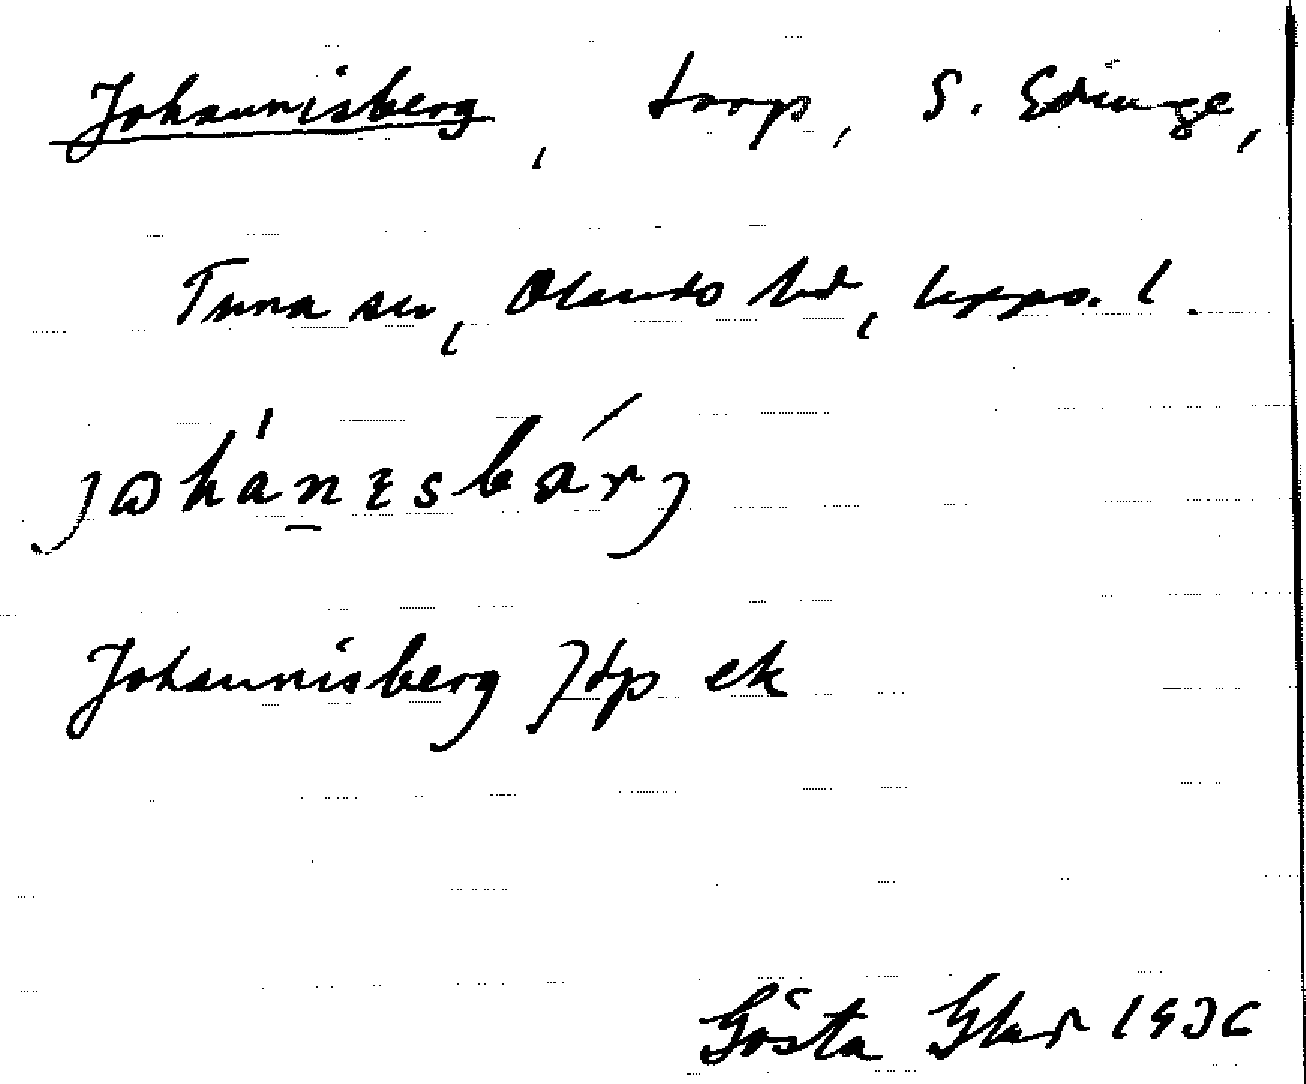 Johannisberg, torp, S. Edinge,
Tuna sn, Olands hd, Upps. l.
johánesbárj
Johannisberg Jtp ek
Gösta 1936